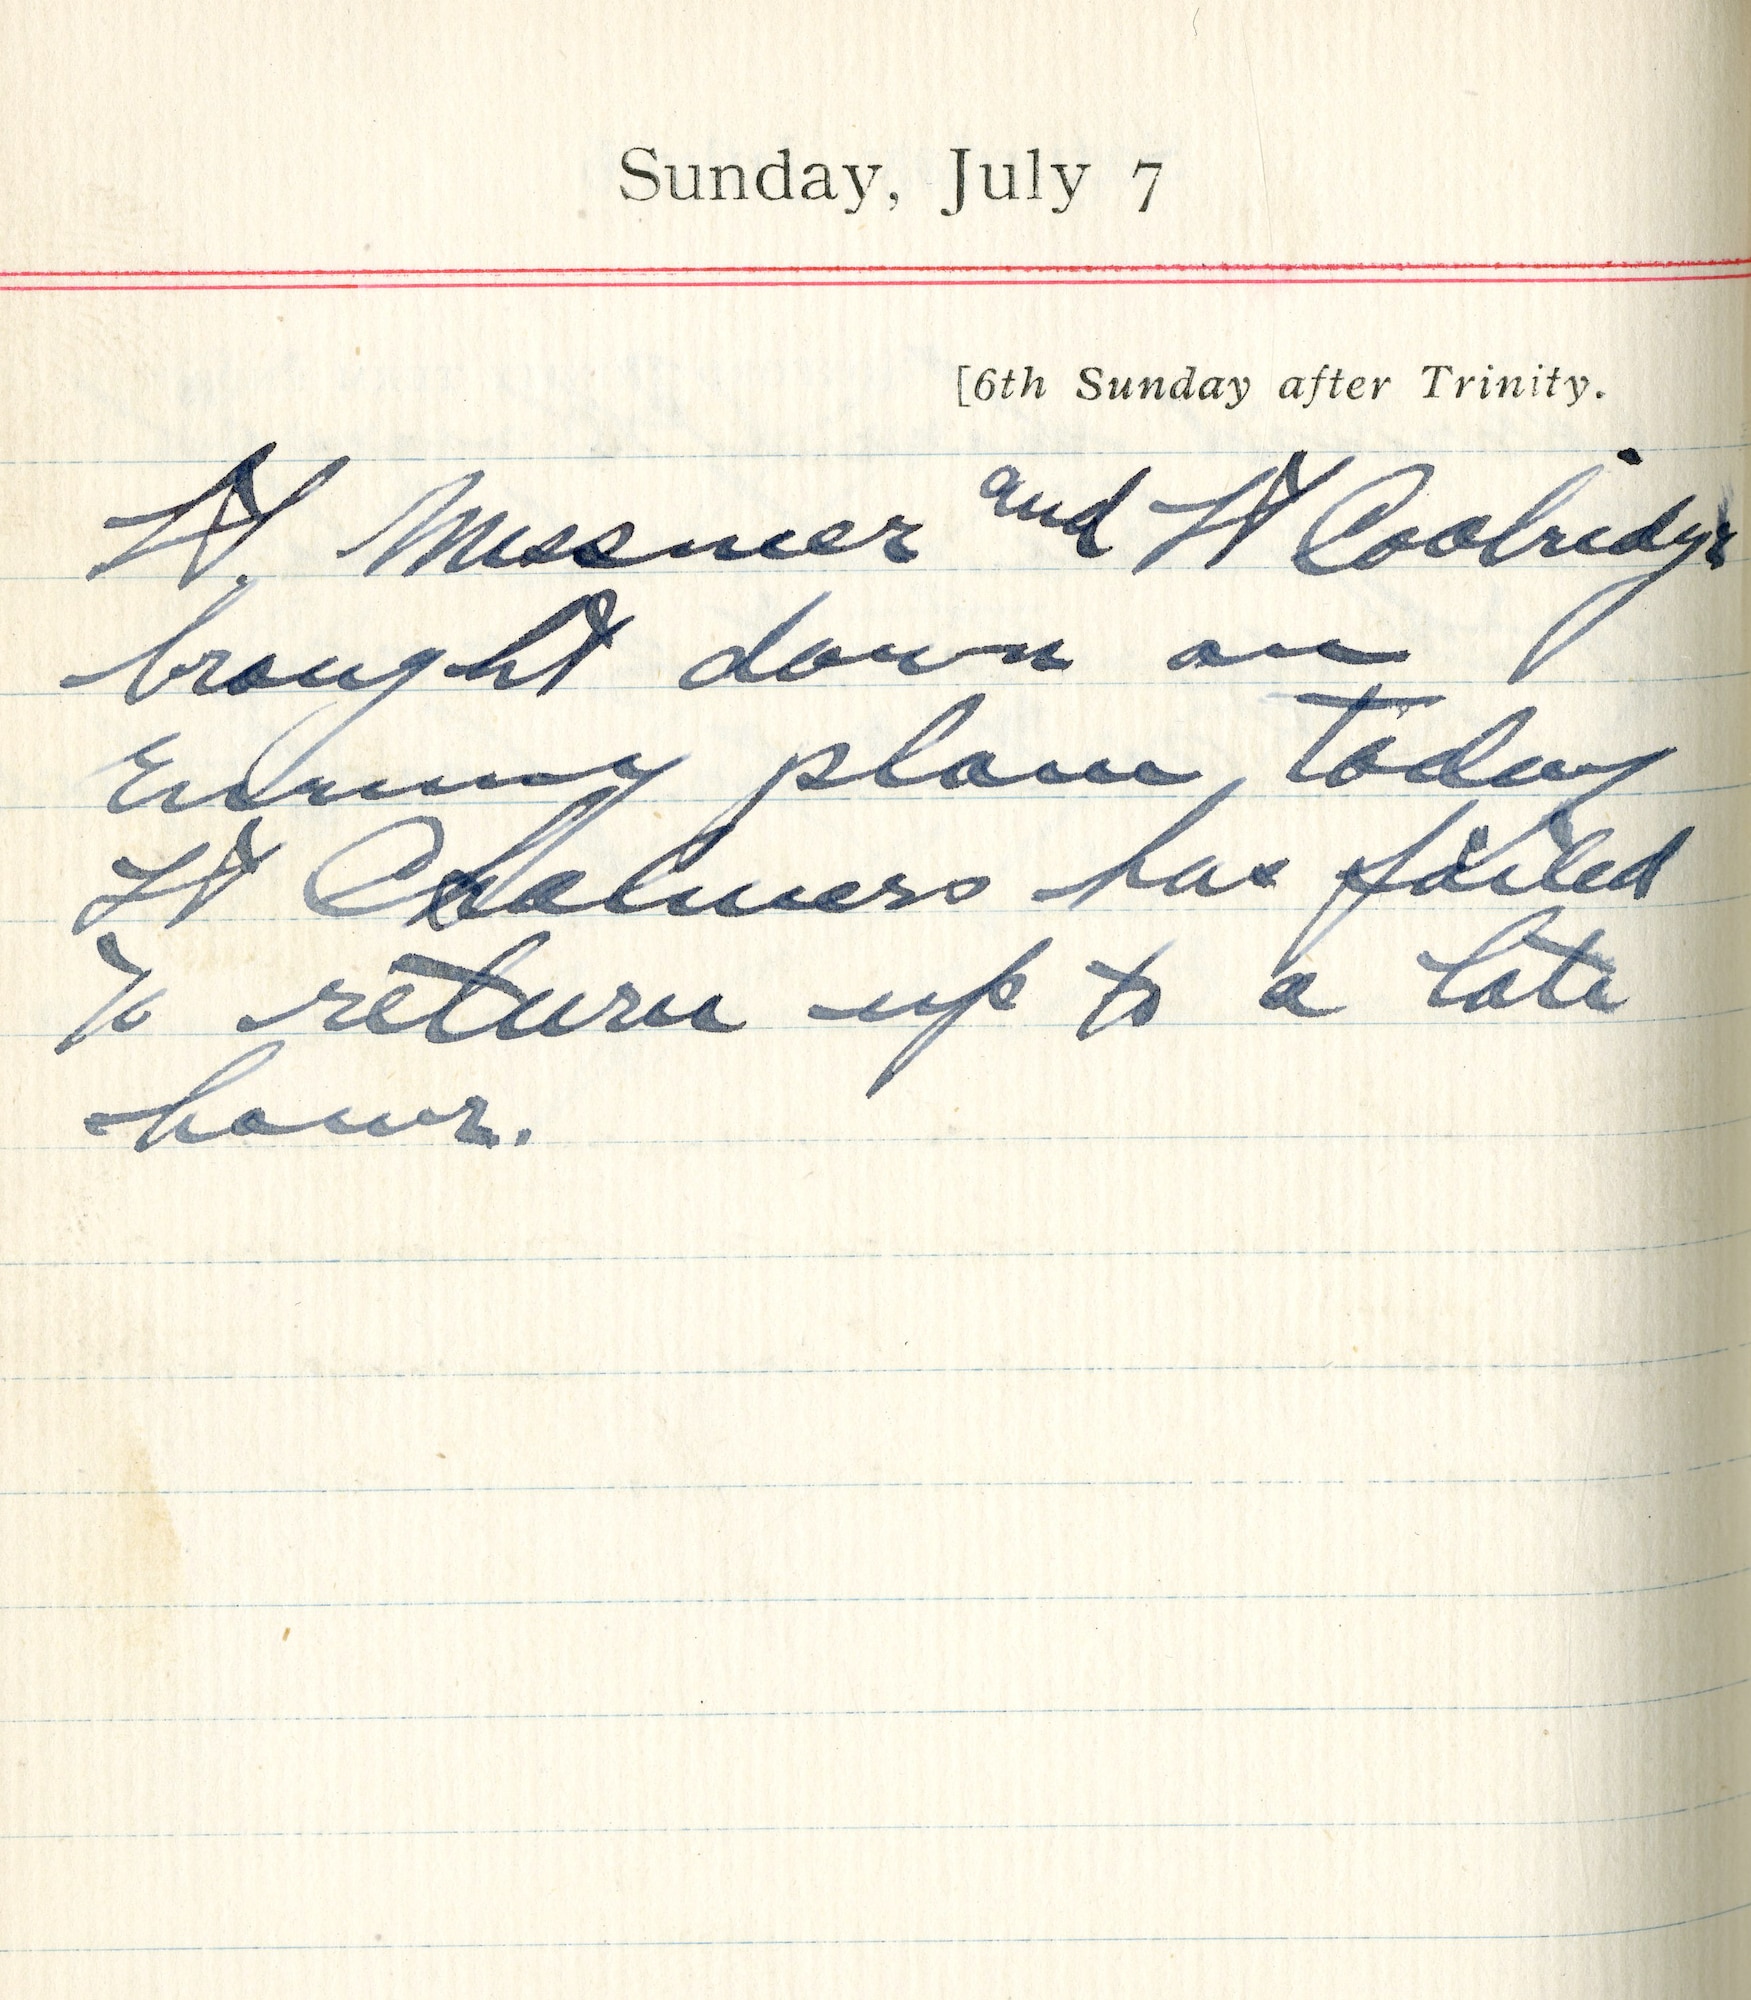 Sunday, July 7
[6th Sunday after Trinity.
Lt. Messner and Lt Coolridge
brought down an
Enemy plane, today
Lt Chalmers has failed
To return up to a late
hour.